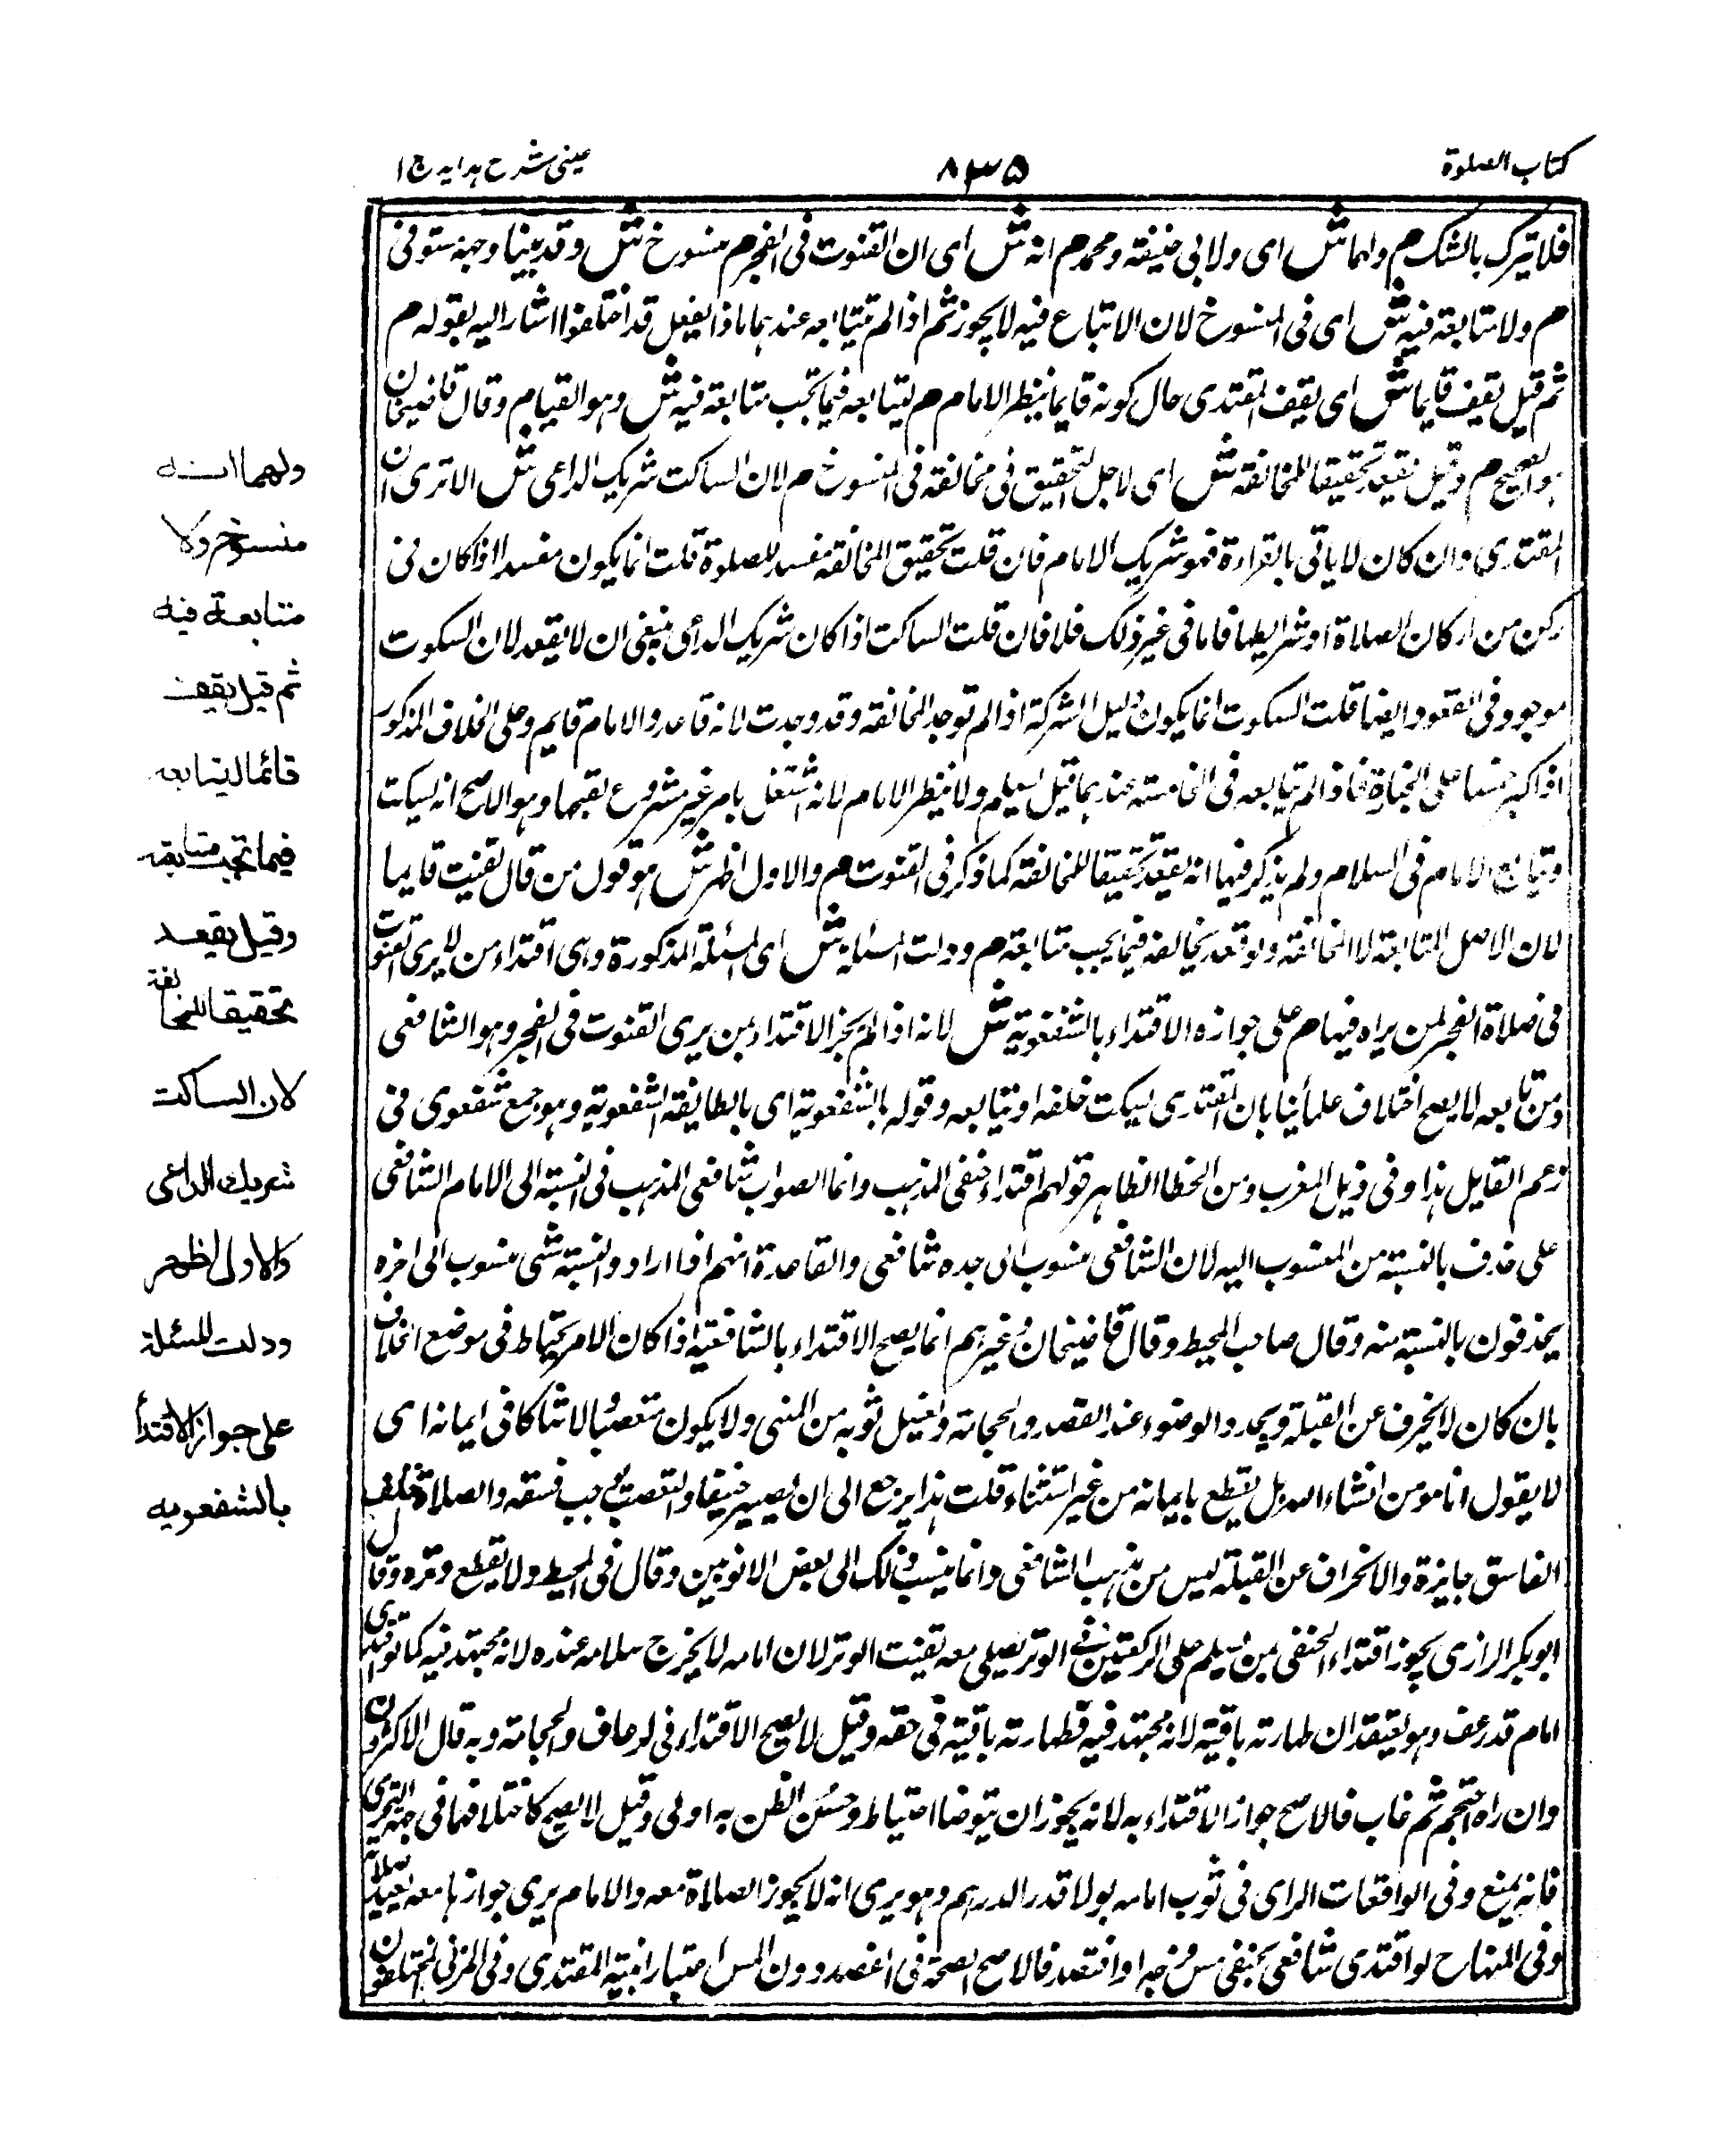 كتاب الصلوة
۸۳۵
عينى شرح هدايه ج ا
فلا يترك بالشك م ولهما ش اى ولابى حنيفة ومحمد م انه ش اى ان القنوت فى الفجر م منسوخ ش وقد بينا وجهه مستوفى
م ولا متابعة فيه ش اى فى المنسوخ لان الاتباع فيه لا يجوز ثم اذا لم يتابعه عندهما ماذا يفعل قد اختلفوا اشار اليه بقوله م
ثم قيل يقف قايما ش اى يقف المقتدى حال كونه قايما ينظر الامام م ليتابعه فيما تجب متابعة فيه ش وهو القيام وقال قاضيخان
هو الصحيح م وقيل يقعد تحقيقا للمخالفة ش اى لاجل التحقيق فى مخالفة فى المنسوخ م لان الساكت شريك الداعى ش الا ترى ان
المقتدى وان كان لا ياتى بالقراءة فهو شريك الامام فان قلت تحقيق المخالفة مفسد للصلوة قلت انما يكون مفسدا اذا كان فى
ركن من اركان الصلاة او شرايطها فاما فى غير ذلك فلا فان قلت الساكت اذا كان شريك الداعى ينبغى ان لا يقعد لان السكوت
موجود فى القعود ايضا قلت السكوت انما يكون دليل الشركة اذا لم توجد المخالفة وقد وجدت لانه قاعد والامام قايم وعلى الخلاف المذكور
اذا كبر خمسا على الجنازة فاذا لم يتابعه فى الخامسة عندهما قيل يسلم ولا ينظر الامام لانه اشتغل بامر غير مشروع بقيها وهو الاصح انه يسكت
ويتابع الامام فى السلام ولم يذكر فيها انه يقعد تحقيقا للمخالفة كما ذكر فى القنوت م والاول اظهر ش هو قول من قال يقنت قايما
لان الاصل المتابعة لا المخالفة ولو قعد يخالفه فيما يجب متابعة م ودلت المسئلة ش اى المسئلة المذكورة وهى اقتداء من لا يرى القنوت
فى صلاة الفجر لمن يراه فيها م على جوازه الاقتداء بالشفعوية ش لانه اذا لم يجز الاقتداء بمن يرى القنوت فى الفجر وهو الشافعى
ومن تابعه لا يصح اختلاف علمأينا بان المقتدى يسكت خلفه او يتابعه وقوله بالشفعوية اى بالطايفة الشفعوية وهو جمع شفعوى فى
زعم القايل هذا وفى ذيل المغرب ومن الخطا الظاهر قولهم اقتداء حنفى المذهب وانما الصواب شافعى المذهب فى النسبة الى الامام الشافعى
على حذف بالنسبة من المنسوب اليه لان الشافعى منسوب الى جده شافعى والقاعدة انهم اذا ارادوا النسبة شى منسوب الى اخره
يحذفون بالنسبة منه وقال صاحب المحيط وقال قاضيخان وغيرهم انما يصح الاقتداء بالشافعية اذا كان الامام يحتاط فى موضع الخلاف
بان كان لا ينحرف عن القبلة ويجدد الوضوء عند الفصد والحجامة ويغسل ثوبه من المنى ولا يكون متعصبا لا شاكا فى ايمانه اى
لا يقول انا مومن انشاء الله بل يقطع بايمانه من غير استثناء قلت هذا يرجع الى ان يصير حنيفا والتعصب يوجب فسقه والصلاة خلف
الفاسق جايزة والانحراف عن القبلة ليس من مذهب الشافعى وانما ينسب ذلك الى بعض الانوبين وقال فى المحيط ولا يقطع وتره وقال
ابو بكر الرازى يجوز اقتداء الحنفى بمن يسلم على الركعتين فى الوتر يصلى معه بقيت الوتر لان امامه لا يخرج سلامه عنده لانه مجتهد فيه كما لو اقتدى
امام قد رعف وهو يعتقد ان طهارته باقية لانه مجتهد فيه فطهارته باقية فى حقه وقيل لا يصح الاقتداء فى الرعاف والحجامة وبه قال الاكثرون
وان راه احتجم ثم غاب فالاصح جواز الاقتداء به لانه يجوز ان يتوضا احتياطا وحسن الظن به اولى وقيل لا يصح كاختلافهما فى جهة التحرى
فانه يمنع وفى الواقعات الراى فى ثوب امامه بولا قدر الدرهم وهو يرى انه لا يجوز الصلاة معه والامام يرى جوازها معه يعيد صلاته
وفى المنهاج لو اقتدى شافعى بحنفى مس فرجه او افتصد فالاصح الصحة فى الفصد دون المس اعتبارا بنية المقتدى وفى المزنى المختلفون
ولهما انه
منسوخ ولا
متابعة فيه
ثم قيل يقف
قائما ليتابعه
فيما تجب متابعته
وقيل يقعد
تحقيقا للمخالفة
لان الساكت
شريك الداعى
والاولى اظهر
ودلت المسئلة
على جواز الاقتدأ
بالشفعويه